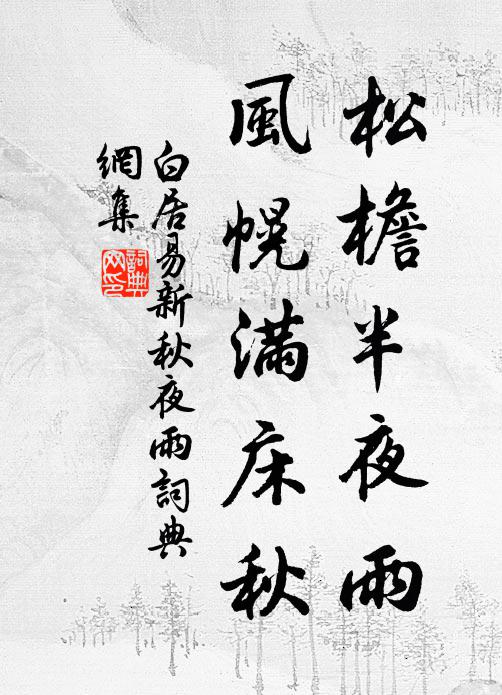 松檐半夜雨
風幌滿床秋
白居易新秋夜雨詞典
網集
詞典
网印